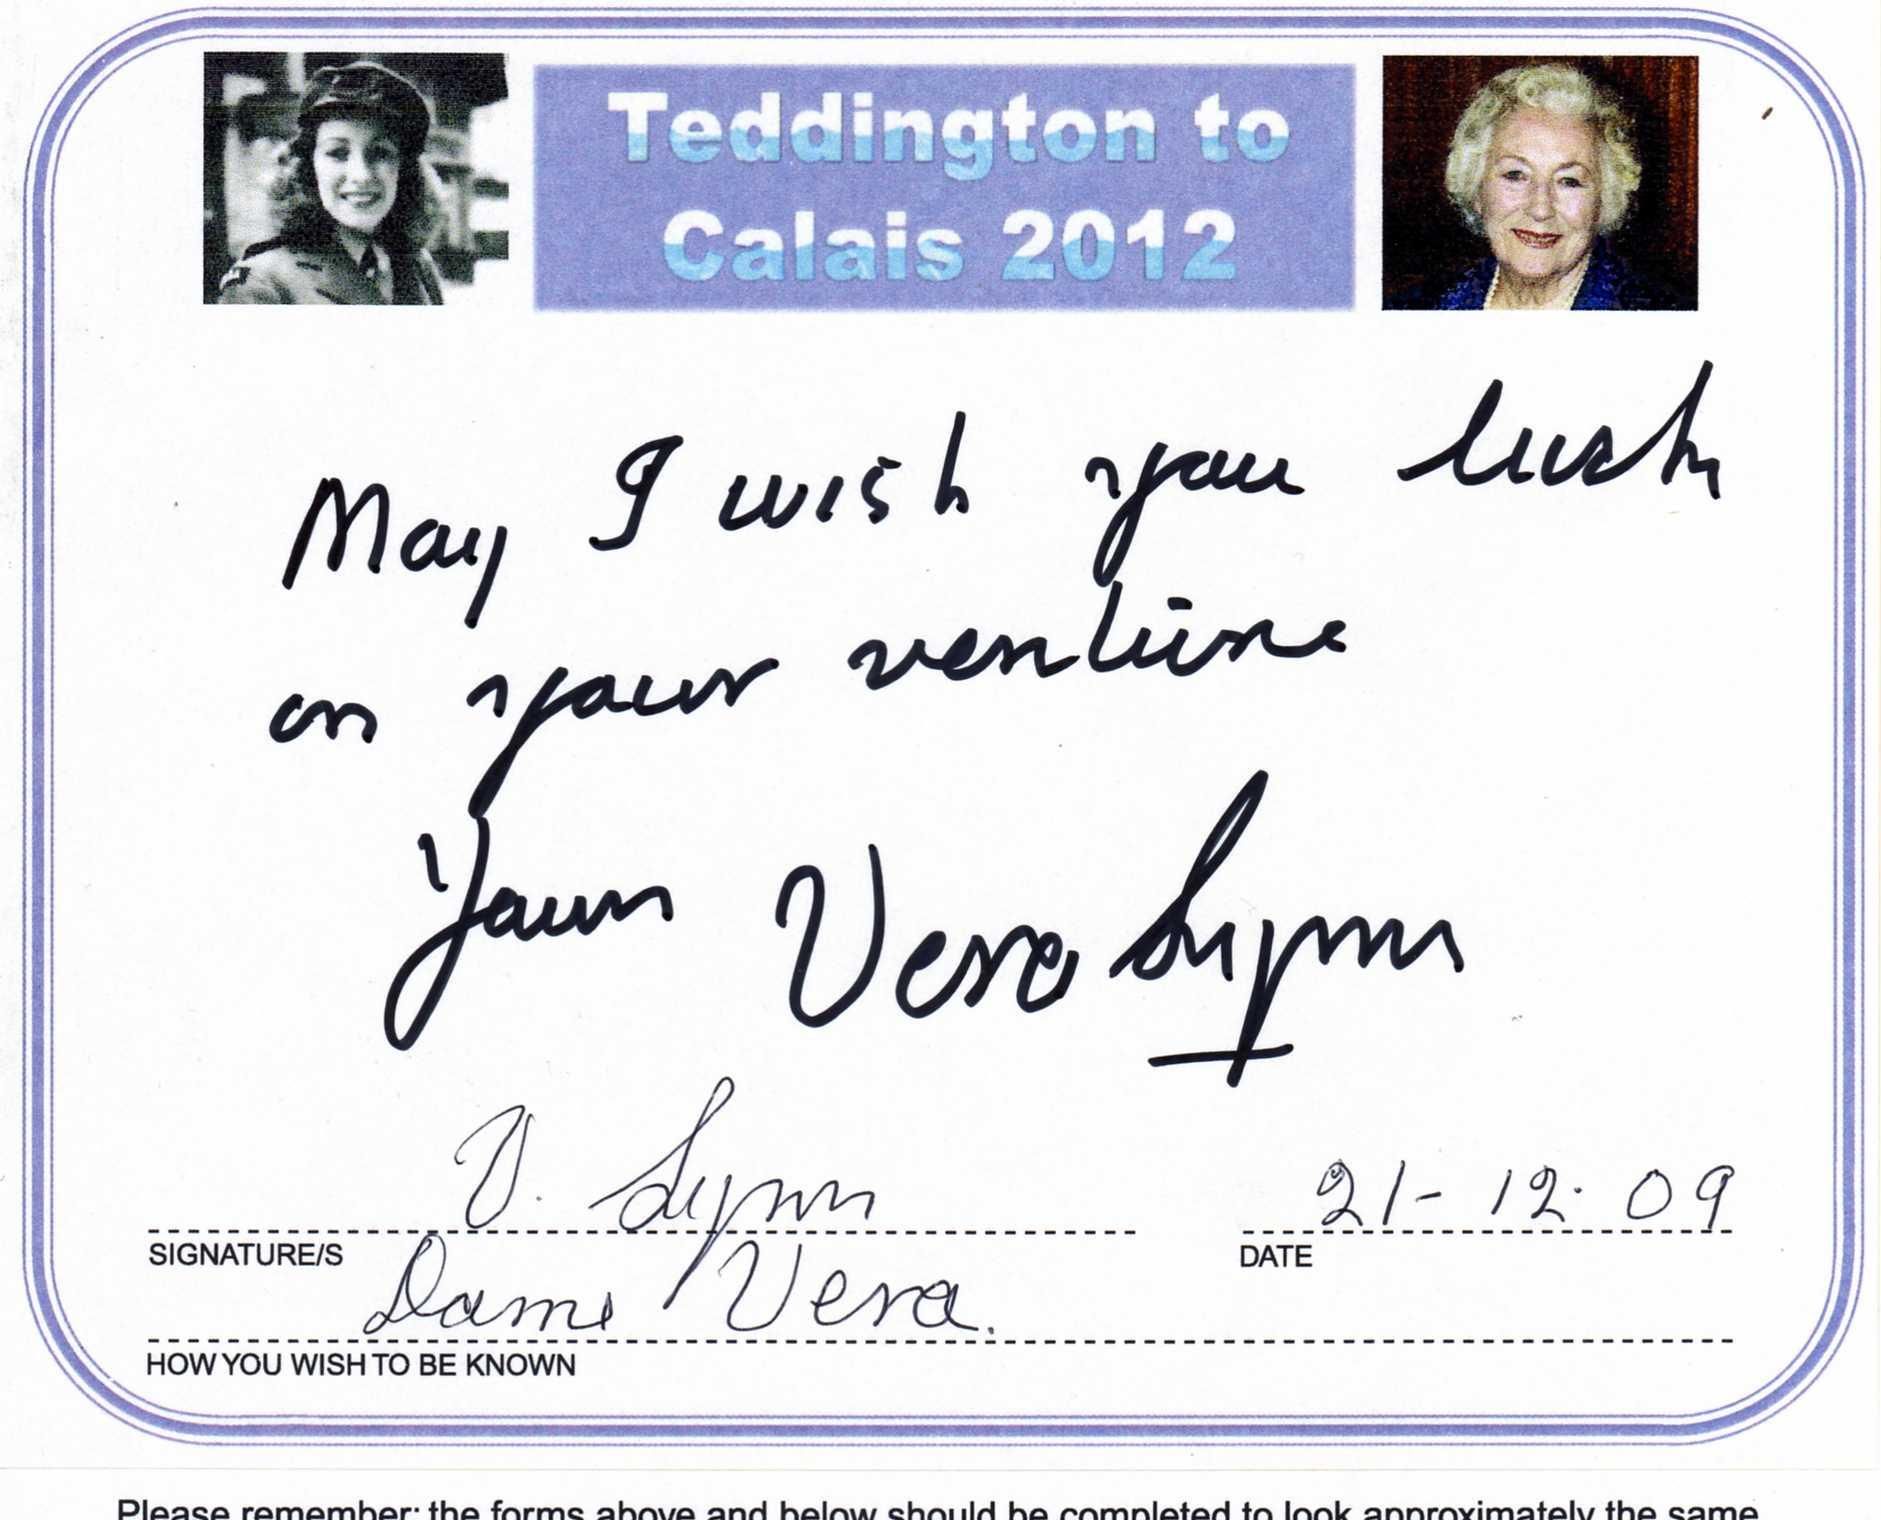 Teddington to
Calais 2012
May I wish you luck
on your venture
Yours Vera Lynn
V. Lynn 21-12.09
SIGNATURE/S DATE
Dame Vera.
HOW YOU WISH TO BE KNOWN
Please remember: the forms above and below should be completed to look approximately the same